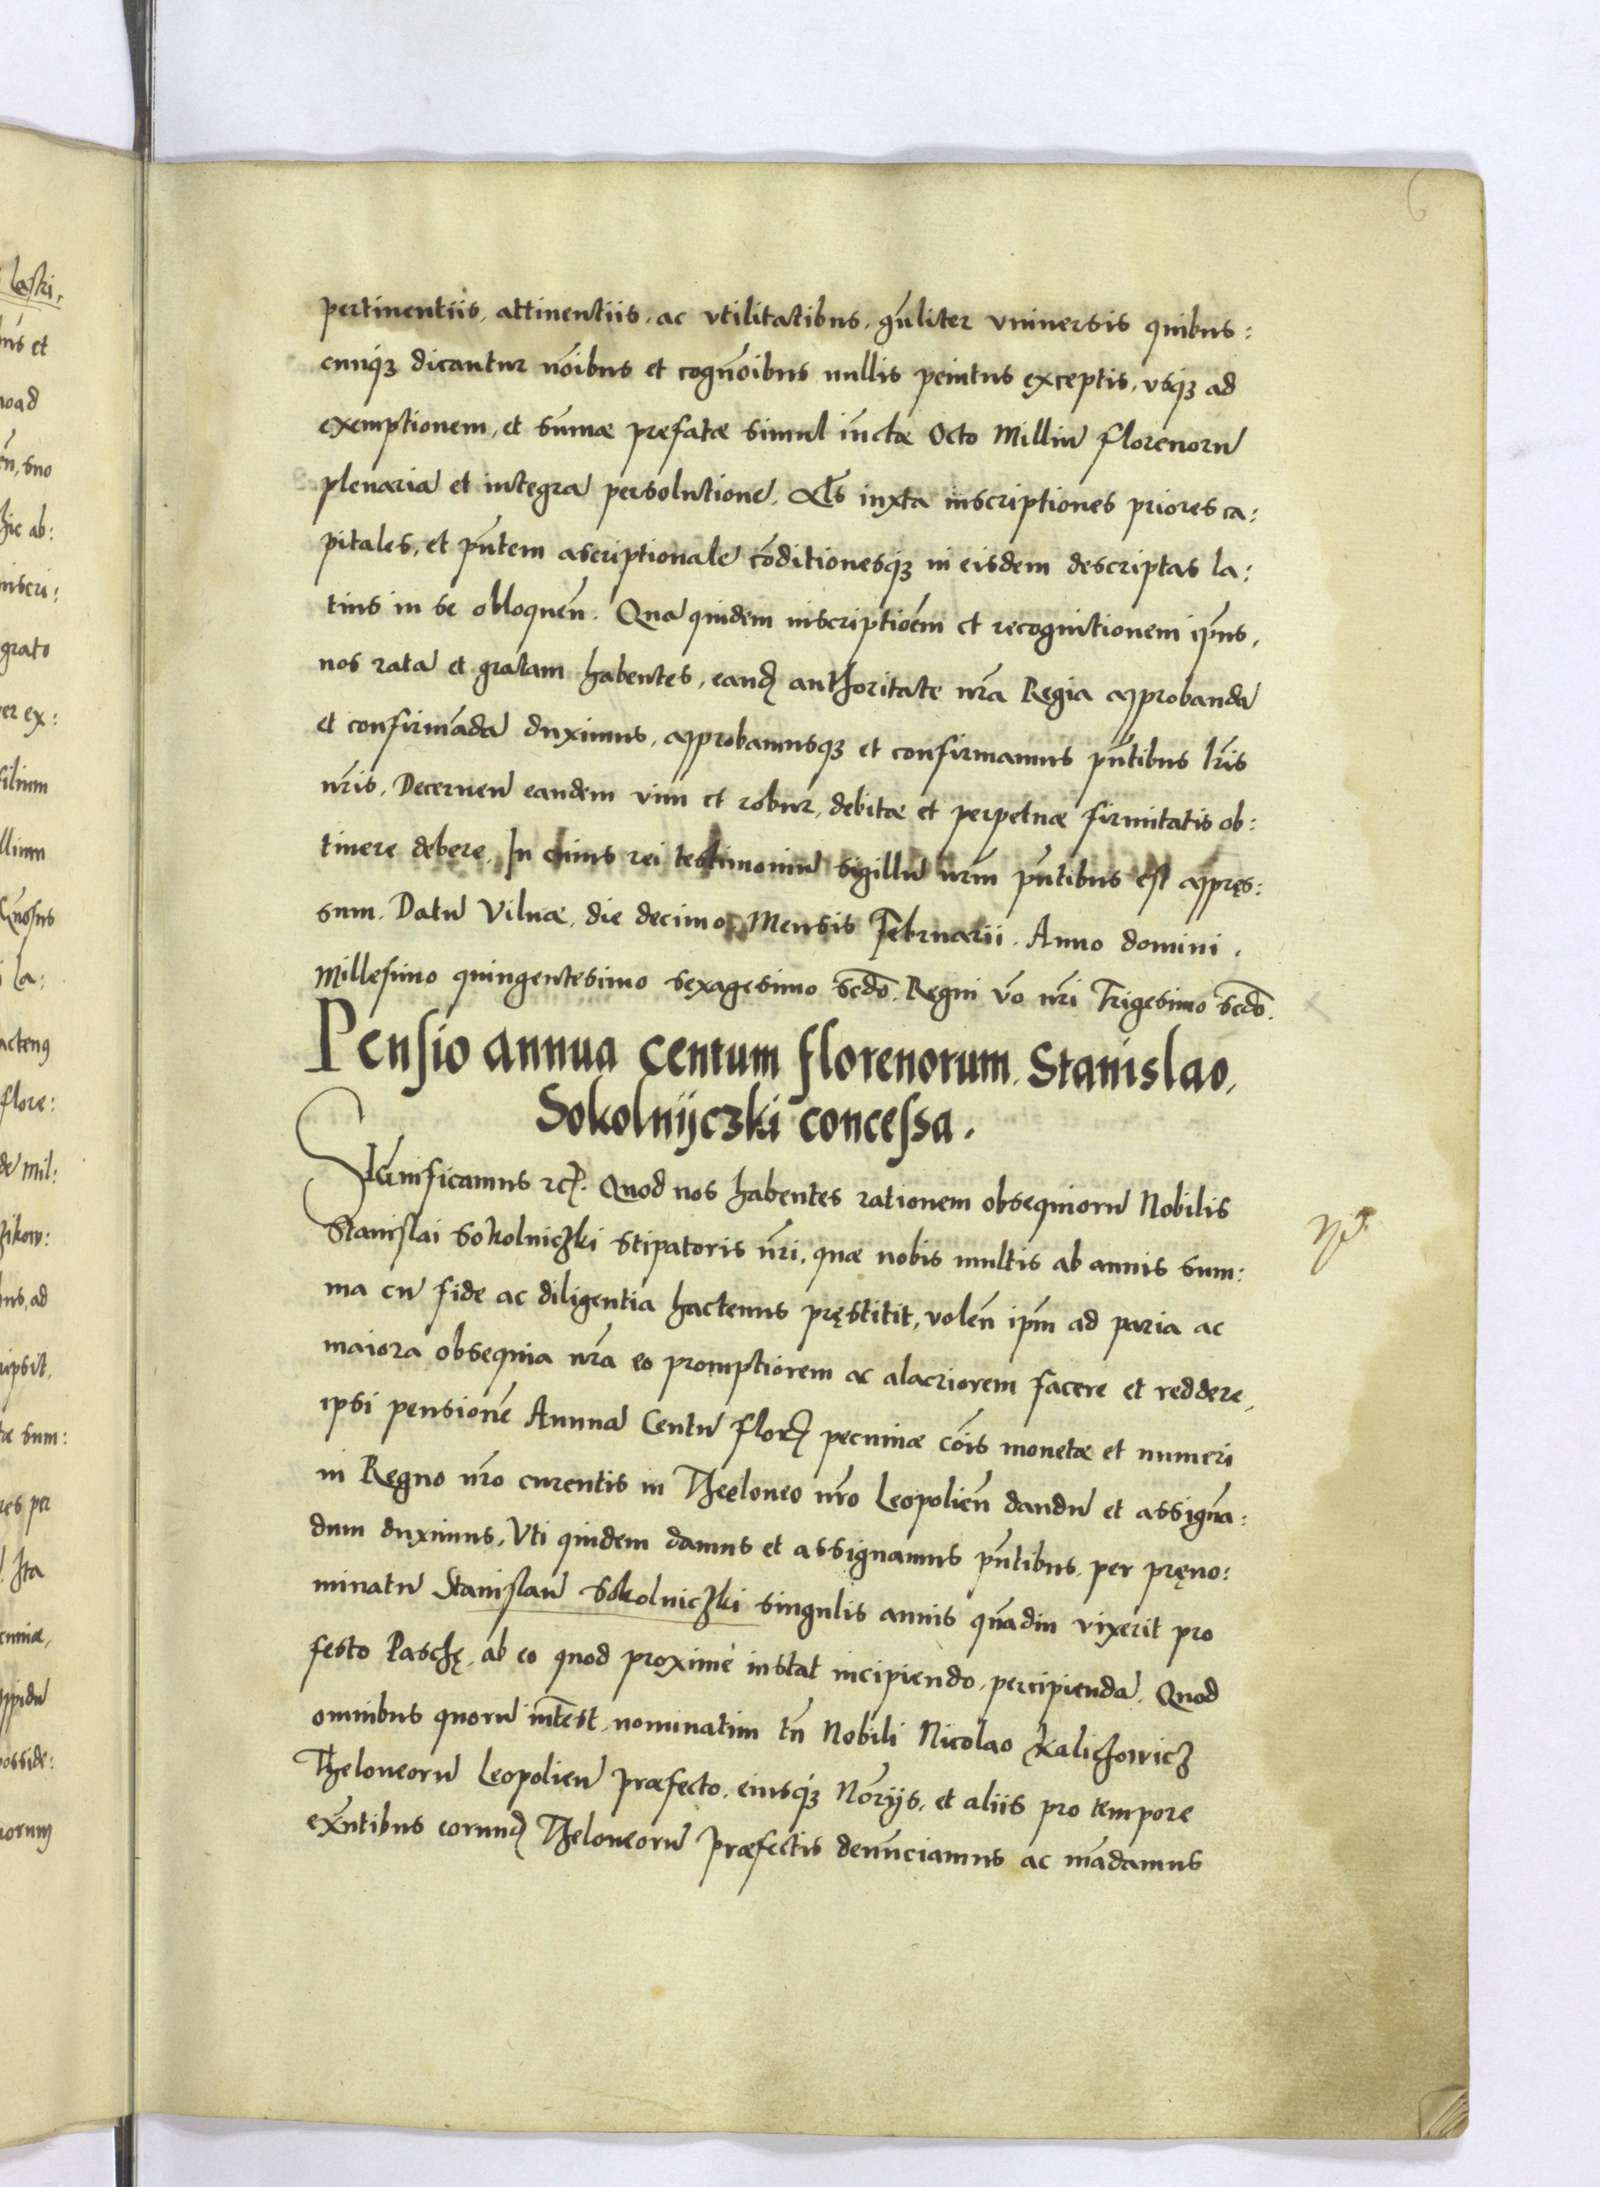 6
pertinentiis, attinentiis, ac vtilitatibus, gn̄liter vniuersis quibus:
cunq₃ dicantur nōibus et cognōibus nullis penitus exceptis, vsq₃ ad
exemptionem, et sūmæ prefatæ simul iūctæ Octo Milliū florenorū
plenariā et integrā persolutionē. Als iuxta inscriptiones priores ca:
pitales, et pn̄tem ascriptionalē cōditionesq₃ in eisdem descriptas la:
tius in se obloquen̄. Quā quidem inscriptiōem et recognitionem ip̄ius,
nos ratā et gratam habentes, eand̨ authoritate nr̄a Regia approbandā
et confirmādā duximus, approbamusq₃ et confirmamus pn̄tibus lr̄is
nr̄is. Decernen̄ eandem vim et robur, debitæ et perpetuæ firmitatis ob:
tinere debere. In cuius rei testimoniū sigillū nr̄m pn̄tibus est appręs:
sum. Datū Vilnæ, die decimo Mensis Februarii. Anno domini.
Millesimo quingentesimo sexagesimo scd̄o. Regni v̄o nr̄i Trigesimo scd̄o.
Pensio annua centum florenorum Stanislao,
Sokolnijczki concessa.
Significamus &c. Quod nos habentes rationem obsequiorū Nobilis
Stanislai Sokolniczki stipatoris nr̄i, quæ nobis multis ab annis sum:
ma cū fide ac diligentia hactenus pręstitit, volen̄ ipm̄ ad paria ac
maiora obsequia nr̄a eo promptiorem ac alacriorem facere et reddere,
ipsi pensionē Annuā Centū flor̨ pecuniæ cōis monetæ et numeri
in Regno nr̄o curentis in Theeloneo nr̄o Leopolien̄ dandū et assignā:
dum duximus, Vti quidem damus et assignamus pn̄tibus, per pręno:
minatū Stanislaū Sokolniczki singulis annis quādiu vixerit pro
festo Paschę, ab eo quod proximè instat incipiendo, percipiendā. Quod
omnibus quorū int̄est, nominatim tn̄ Nobili Nicolao Kaliczowicz
Theloneorū Leopolien̄ præfecto, eiusq₃ Nōrijs, et aliis pro tempore
exn̄tibus eorund̨ Theloneorū præfectis denūciamus ac mādamus